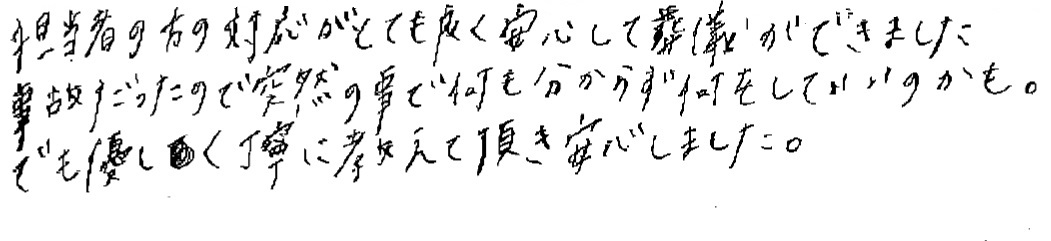 担当者の方の対応がとても良く安心して葬儀ができました
事故だったので突然の事で何も分からず何をしていいのかも。
でも優しく丁寧に教えて頂き安心しました。